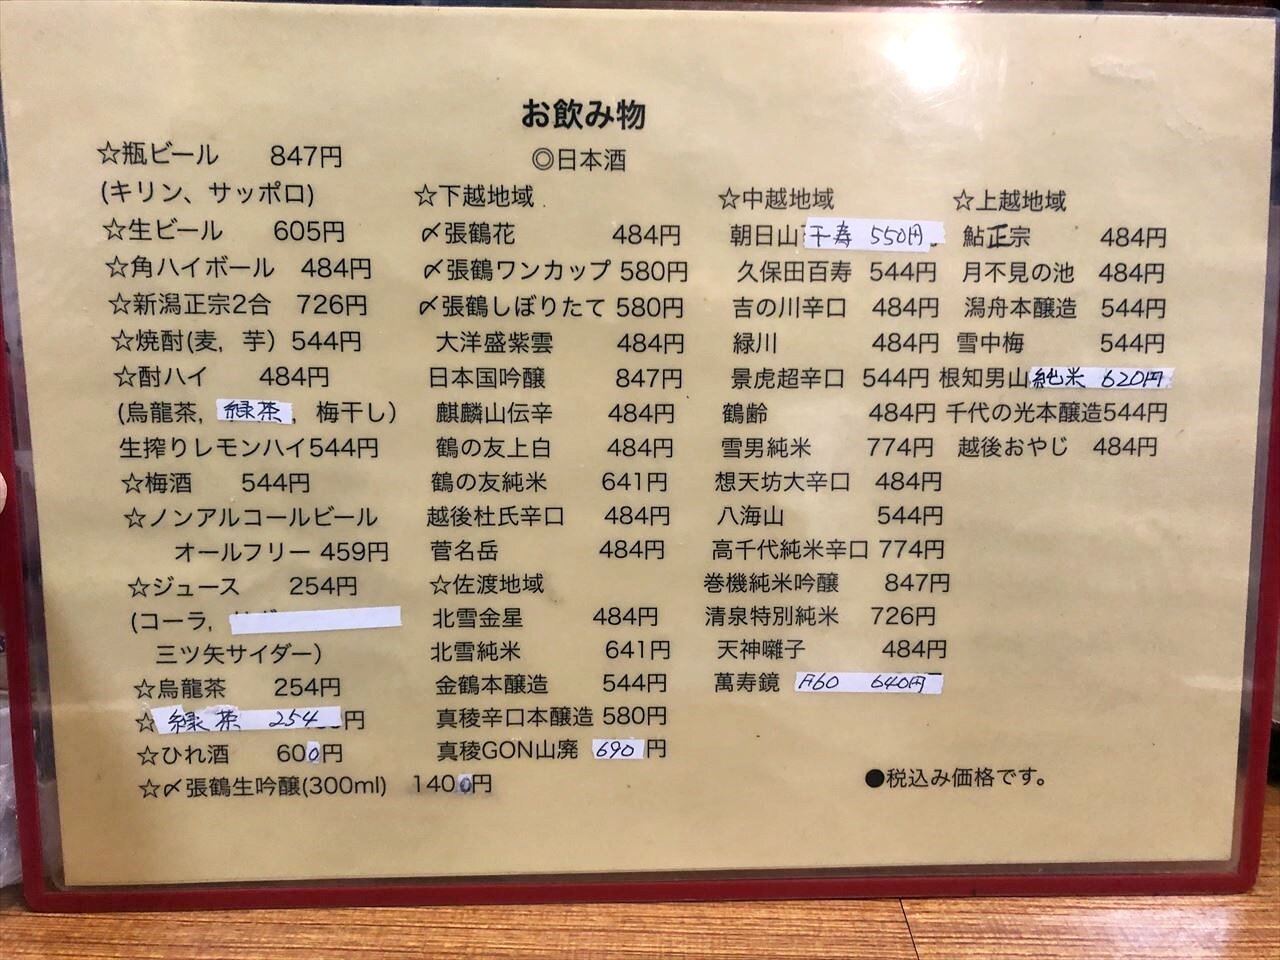 お飲み物
☆瓶ビール 847円
(キリン、サッポロ)
☆生ビール 605円
☆角ハイボール 484円
☆新潟正宗2合 726円
☆焼酎(麦, 芋) 544円
☆酎ハイ 484円
(烏龍茶, 緑茶, 梅干し)
生搾りレモンハイ544円
☆梅酒 544円
☆ノンアルコールビール
オールフリー 459円
☆ジュース 254円
(コーラ,
三ツ矢サイダー)
☆烏龍茶 254円
☆緑茶 254円
☆ひれ酒 600円
☆〆張鶴生吟醸(300ml) 1400円
◎日本酒
☆下越地域
〆張鶴花 484円
〆張鶴ワンカップ 580円
〆張鶴しぼりたて 580円
大洋盛紫雲 484円
日本国吟醸 847円
麒麟山伝辛 484円
鶴の友上白 484円
鶴の友純米 641円
越後杜氏辛口 484円
菅名岳 484円
☆佐渡地域
北雪金星 484円
北雪純米 641円
金鶴本醸造 544円
真稜辛口本醸造 580円
真稜GON山廃 690円
☆中越地域
朝日山千寿 550円
久保田百寿 544円
吉の川辛口 484円
緑川 484円
景虎超辛口 544円
鶴齢 484円
雪男純米 774円
想天坊大辛口 484円
八海山 544円
高千代純米辛口 774円
巻機純米吟醸 847円
清泉特別純米 726円
天神囃子 484円
萬寿鏡 F60 640円
☆上越地域
鮎正宗 484円
月不見の池 484円
潟舟本醸造 544円
雪中梅 544円
根知男山純米 620円
千代の光本醸造544円
越後おやじ 484円
●税込み価格です。